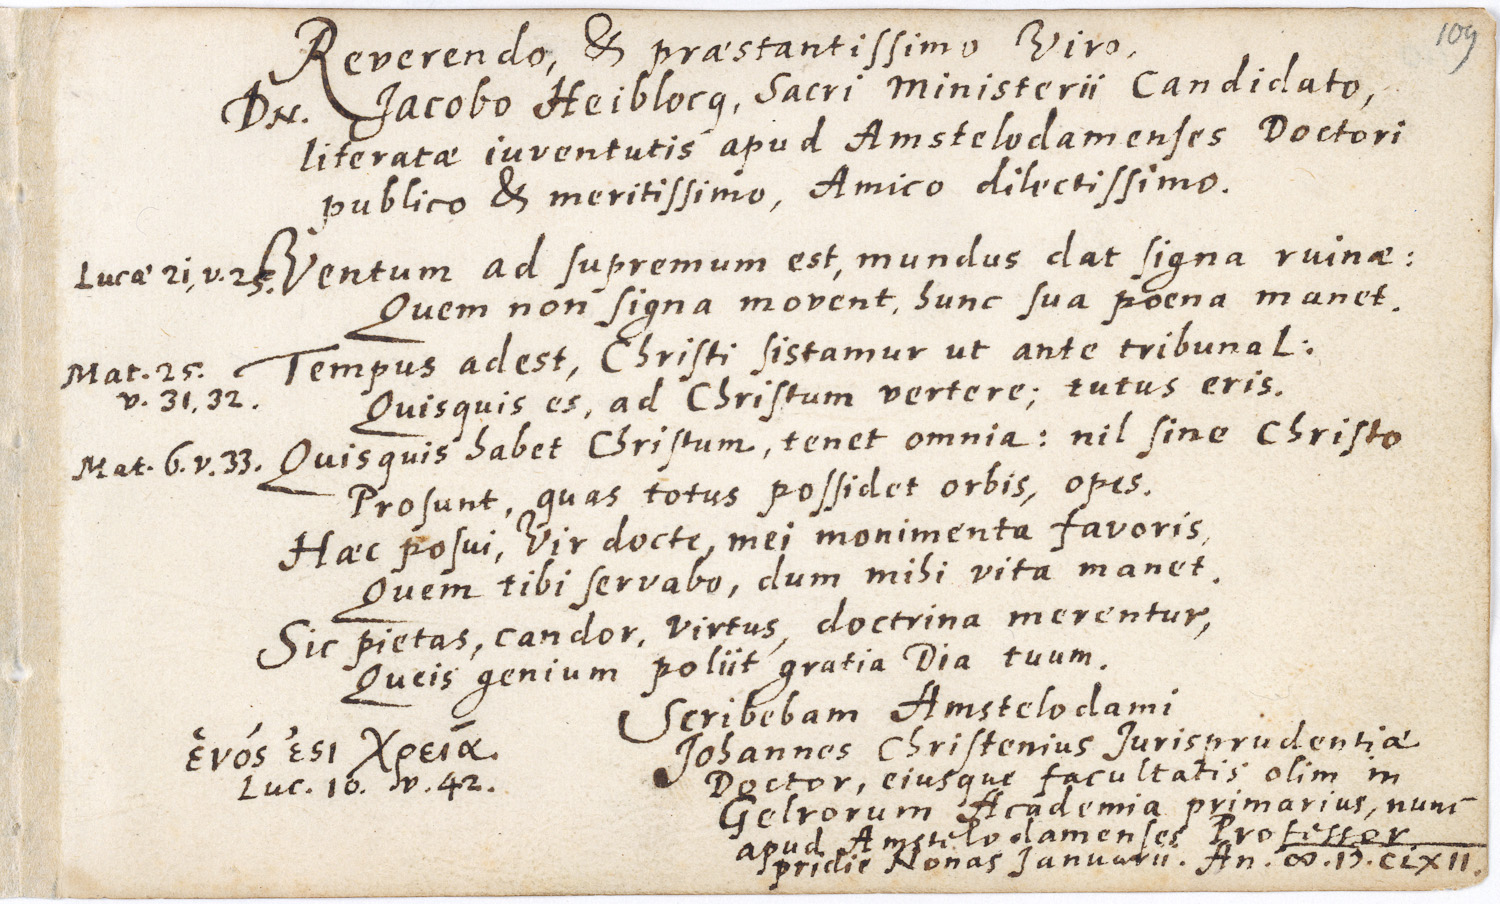 109
Reverendo, & præstantissimo Viro,
Dn. Jacobo Heiblocq, Sacri Ministerii Candidato,
literatæ iuventutis apud Amstelodamenses Doctori
publico & meritissimo, Amico dilectissimo.
Lucæ 21, v. 25. Ventum ad supremum est, mundus dat signa ruinæ:
Quem non signa movent, hunc sua poena manet.
Mat. 25. Tempus adest, Christi sistamur ut ante tribunal:
v. 31, 32. Quisquis es, ad Christum vertere; tutus eris.
Mat. 6. v. 33. Quisquis habet Christum, tenet omnia: nil sine Christo
Prosunt, quas totus possidet orbis, opes.
Hæc posui, Vir docte, mei monimenta favoris,
Quem tibi servabo, dum mihi vita manet.
Sic pietas, candor, virtus, doctrina merentur,
Queis genium poliit gratia Dia tuum.
Scribebam Amstelodami
ἑνός ἐςι χρεία. Johannes Christenius Jurisprudentiæ
Luc. 10. v. 42. Doctor, eiusque facultatis olim in
Gelrorum Academia primarius, nunc
apud Amstelodamenses Professor
pridie Nonas Januarii. An. ∞.IↃ.CLXII.